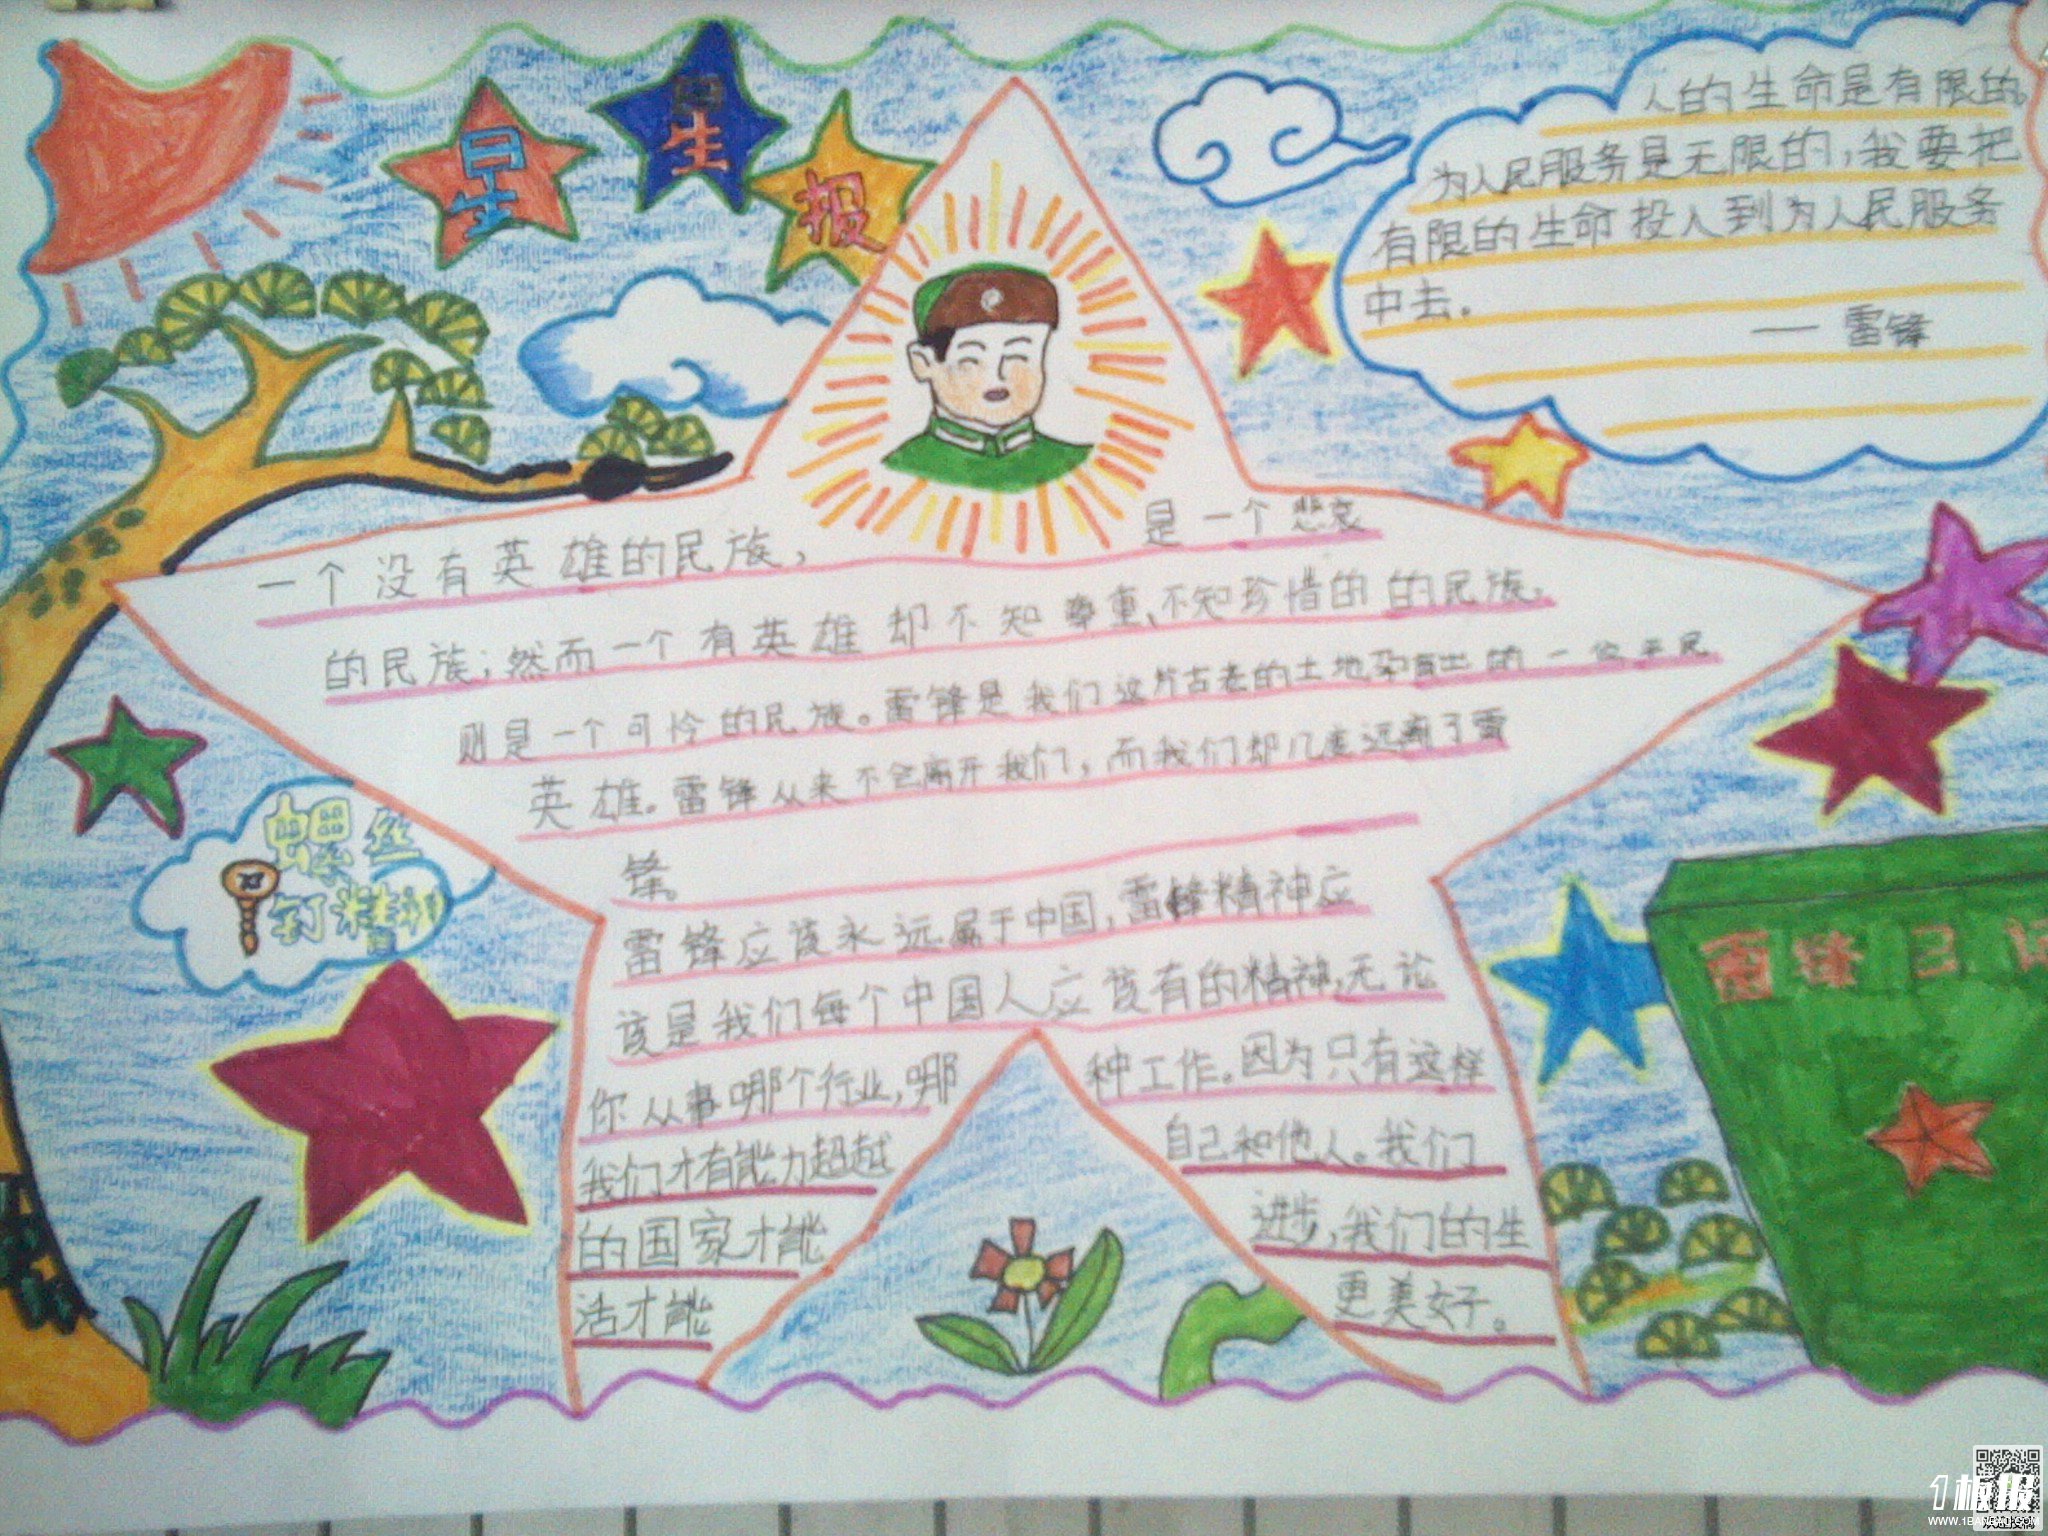 星星报
人的生命是有限的。
为人民服务是无限的，我要把
有限的生命投入到为人民服务
中去。
——雷锋
一个没有英雄的民族，是一个悲哀
的民族；然而一个有英雄却不知尊重、不知珍惜的的民族。
则是一个可怜的民族。雷锋是我们这片古老的土地孕育出的一位平民
英雄。雷锋从来不会离开我们，而我们却几度远离了雷
锋。
雷锋应该永远属于中国，雷锋精神应
该是我们每个中国人应该有的精神，无论
你从事哪个行业，哪种工作。因为只有这样
我们才有能力超越自己和他人。我们
的国家才能进步，我们的生
活才能更美好。
螺丝
钉精神
雷锋日记
1板报
WWW.1BANBAO.COM